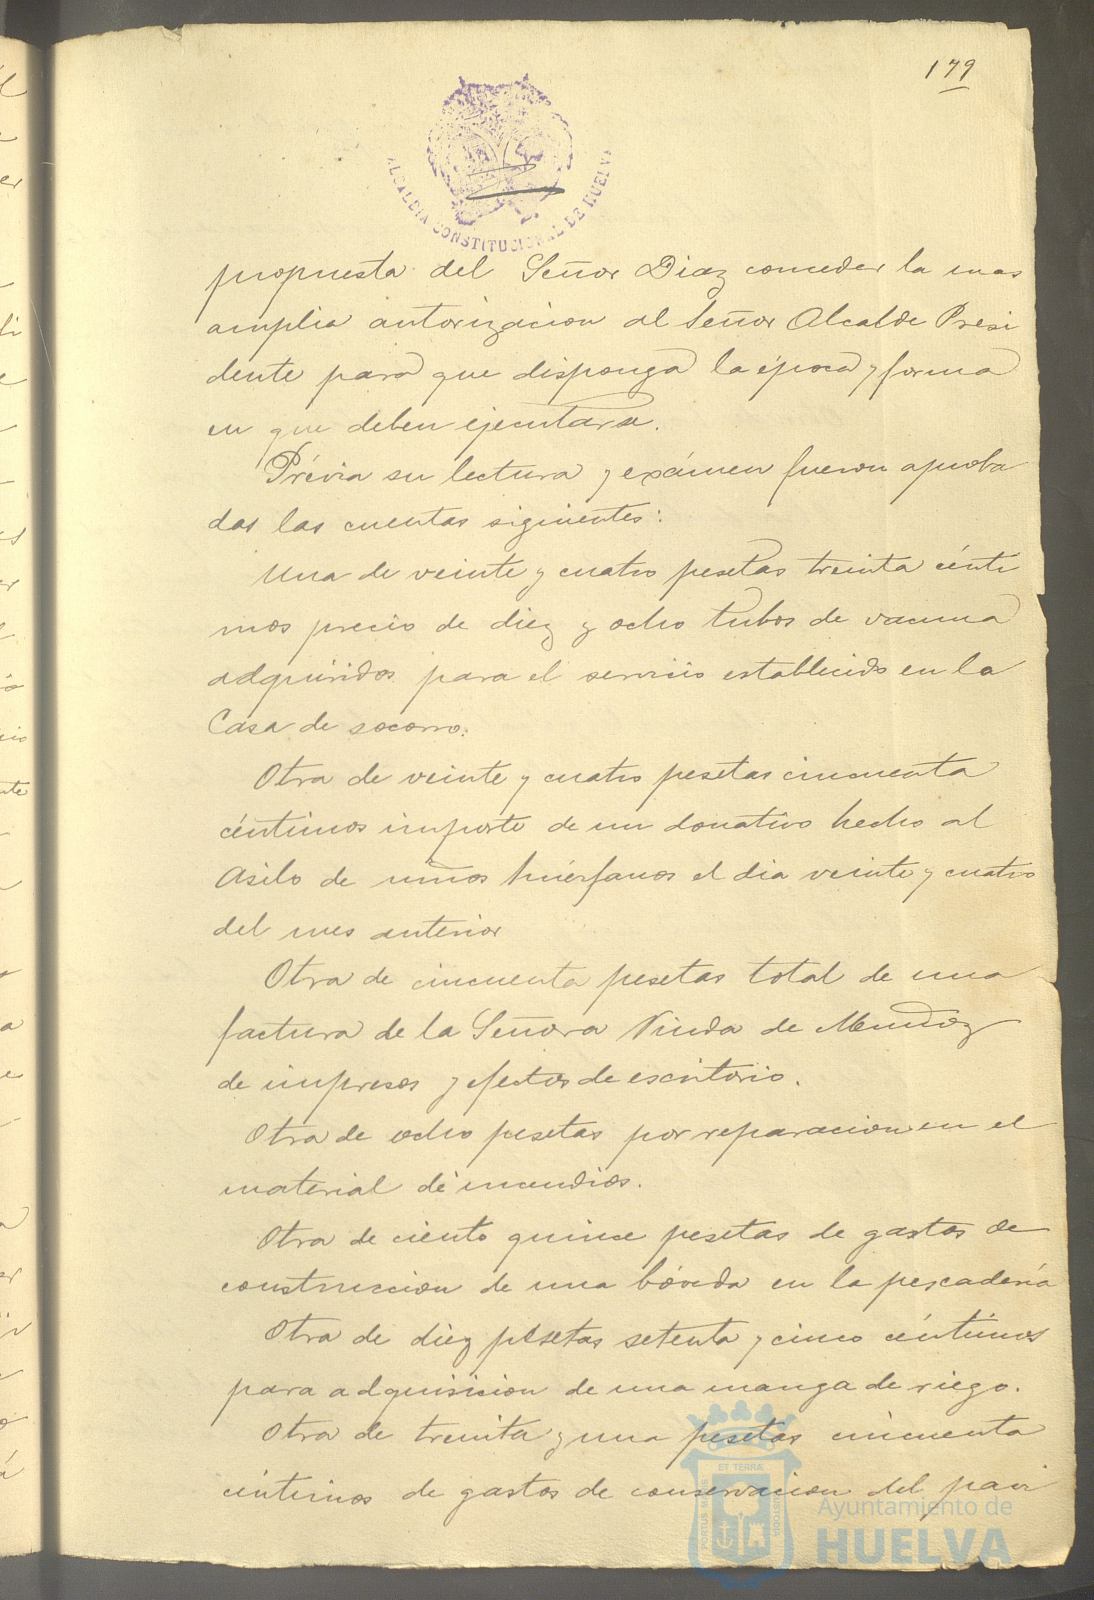 179
ALCALDIA CONSTITUCIONAL DE HUELVA
propuesta del Señor Diaz conceder la mas
amplia autorizacion al Señor Alcalde Presi
dente para que disponga la época y forma
en que deben ejecutarse.
Prévia su lectura y exámen fueron aproba
das las cuentas siguientes:
Una de veinte y cuatro pesetas treinta cénti
mos precio de diez y ocho tubos de vacuna
adquiridos para el servicio establecido en la
Casa de socorro.
Otra de veinte y cuatro pesetas cincuenta
céntimos importe de un donativo hecho al
Asilo de niños huérfanos el dia veinte y cuatro
del mes anterior
Otra de cincuenta pesetas total de una
factura de la Señora Viuda de Muñoz
de impresos y efectos de escritorio.
Otra de ocho pesetas por reparacion en el
material de incendios.
Otra de ciento quince pesetas de gastos de
construccion de una bóveda en la pescadería
Otra de diez pesetas setenta y cinco céntimos
para adquisicion de una manga de riego.
Otra de treinta y una pesetas cincuenta
céntimos de gastos de conservacion del pavi
PORTUS MARIS ET TERRAE CUSTODIA
Ayuntamiento de
HUELVA